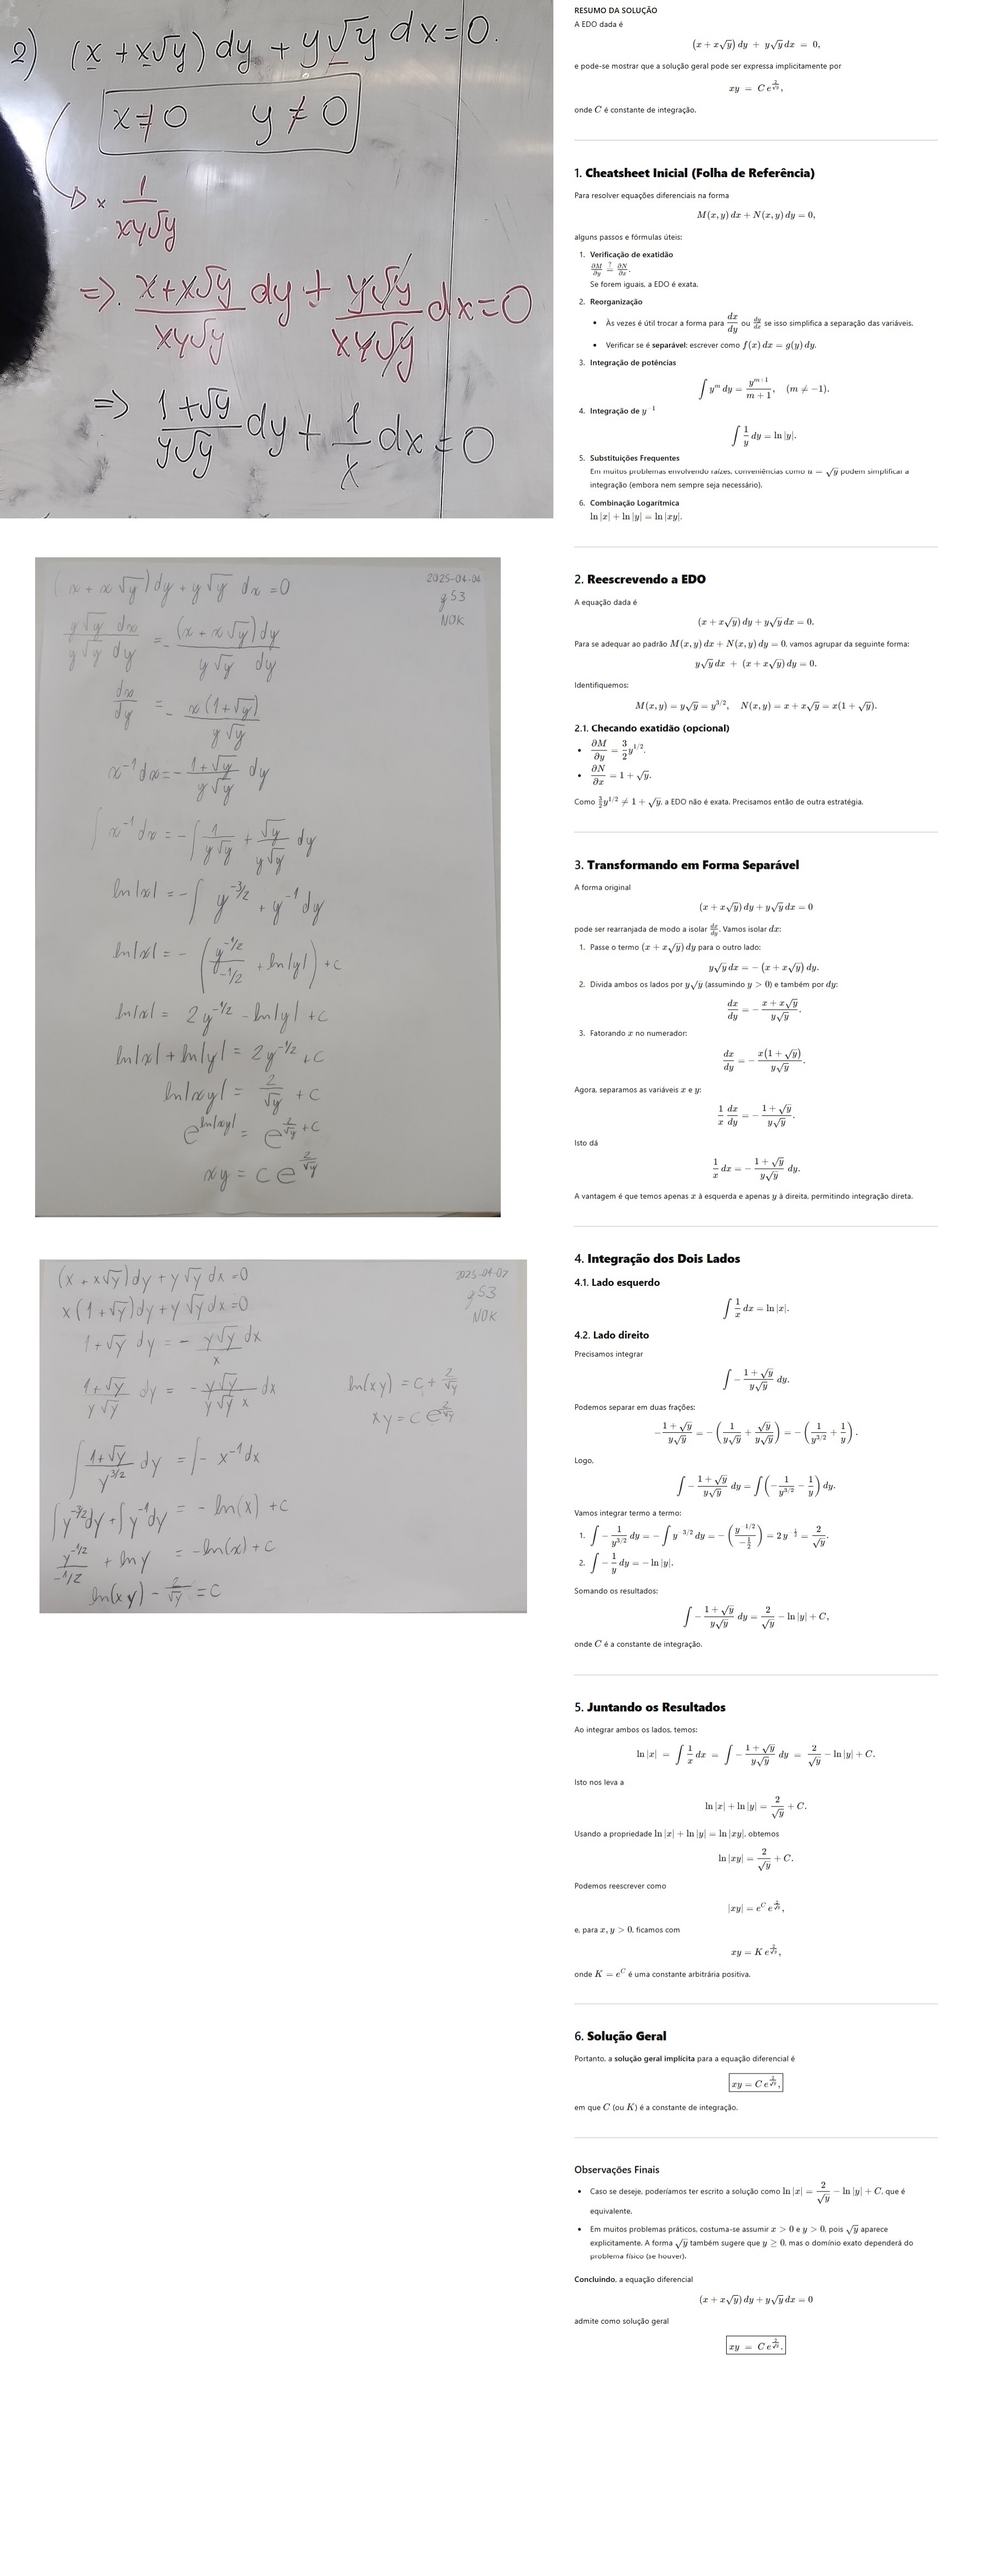 2) (x + x√y) dy + y√y dx = 0.
x ≠ 0 y ≠ 0
x 1/(xy√y)
=>. (x + x√y)/(xy√y) dy + (y√y)/(xy√y) dx = 0
=> (1+√y)/(y√y) dy + 1/x dx = 0
(x + x√y) dy + y√y dx = 0
2025-04-04
g53
NOK
(y√y dx)/(y√y dy) = -((x + x√y) dy)/(y√y dy)
dx/dy = - (x(1+√y))/(y√y)
x^-1 dx = - (1+√y)/(y√y) dy
∫ x^-1 dx = -∫ 1/(y√y) + √y/(y√y) dy
ln|x| = -∫ y^(-3/2) + y^-1 dy
ln|x| = - (y^(-1/2)/(-1/2) + ln|y|) + c
ln|x| = 2y^(-1/2) - ln|y| + c
ln|x| + ln|y| = 2y^(-1/2) + c
ln|xy| = 2/√y + c
e^(ln|xy|) = e^(2/√y + c)
xy = c e^(2/√y)
(x + x√y) dy + y√y dx = 0
2025-04-07
g53
NOK
x(1+√y) dy + y√y dx = 0
1+√y dy = - (y√y)/x dx
(1+√y)/(y√y) dy = - (y√y)/(y√y x) dx
∫ (1+√y)/y^(3/2) dy = ∫ - x^-1 dx
∫ y^(-3/2) dy + ∫ y^-1 dy = - ln(x) + c
y^(-1/2)/(-1/2) + ln y = - ln(x) + c
ln(xy) - 2/√y = c
ln(xy) = c + 2/√y
xy = c e^(2/√y)
RESUMO DA SOLUÇÃO
A EDO dada é
(x + x√y) dy + y√y dx = 0,
e pode-se mostrar que a solução geral pode ser expressa implicitamente por
xy = C e^(2/√y),
onde C é constante de integração.
1. Cheatsheet Inicial (Folha de Referência)
Para resolver equações diferenciais na forma
M(x, y) dx + N(x, y) dy = 0,
alguns passos e fórmulas úteis:
1. Verificação de exatidão
∂M/∂y ?= ∂N/∂x.
Se forem iguais, a EDO é exata.
2. Reorganização
• Às vezes é útil trocar a forma para dx/dy ou dy/dx se isso simplifica a separação das variáveis.
• Verificar se é separável: escrever como f(x) dx = g(y) dy.
3. Integração de potências
∫ y^m dy = y^(m+1)/(m+1), (m ≠ −1).
4. Integração de y^−1
∫ 1/y dy = ln|y|.
5. Substituições Frequentes
Em muitos problemas envolvendo raízes, conveniências como u = √y podem simplificar a
integração (embora nem sempre seja necessário).
6. Combinação Logarítmica
ln|x| + ln|y| = ln|xy|.
2. Reescrevendo a EDO
A equação dada é
(x + x√y) dy + y√y dx = 0.
Para se adequar ao padrão M(x, y) dx + N(x, y) dy = 0, vamos agrupar da seguinte forma:
y√y dx + (x + x√y) dy = 0.
Identifiquemos:
M(x, y) = y√y = y^(3/2), N(x, y) = x + x√y = x(1 + √y).
2.1. Checando exatidão (opcional)
• ∂M/∂y = 3/2 y^(1/2).
• ∂N/∂x = 1 + √y.
Como 3/2 y^(1/2) ≠ 1 + √y, a EDO não é exata. Precisamos então de outra estratégia.
3. Transformando em Forma Separável
A forma original
(x + x√y) dy + y√y dx = 0
pode ser rearranjada de modo a isolar dx/dy. Vamos isolar dx:
1. Passe o termo (x + x√y) dy para o outro lado:
y√y dx = −(x + x√y) dy.
2. Divida ambos os lados por y√y (assumindo y > 0) e também por dy:
dx/dy = − (x + x√y)/(y√y).
3. Fatorando x no numerador:
dx/dy = − x(1 + √y)/(y√y).
Agora, separamos as variáveis x e y:
1/x dx/dy = − (1 + √y)/(y√y).
Isto dá
1/x dx = − (1 + √y)/(y√y) dy.
A vantagem é que temos apenas x à esquerda e apenas y à direita, permitindo integração direta.
4. Integração dos Dois Lados
4.1. Lado esquerdo
∫ 1/x dx = ln|x|.
4.2. Lado direito
Precisamos integrar
∫ − (1 + √y)/(y√y) dy.
Podemos separar em duas frações:
− (1 + √y)/(y√y) = −(1/(y√y) + √y/(y√y)) = −(1/y^(3/2) + 1/y).
Logo,
∫ − (1 + √y)/(y√y) dy = ∫ (−1/y^(3/2) − 1/y) dy.
Vamos integrar termo a termo:
1. ∫ − 1/y^(3/2) dy = − ∫ y^(−3/2) dy = −(y^(−1/2)/(−1/2)) = 2 y^(−1/2) = 2/√y.
2. ∫ − 1/y dy = − ln|y|.
Somando os resultados:
∫ − (1 + √y)/(y√y) dy = 2/√y − ln|y| + C,
onde C é a constante de integração.
5. Juntando os Resultados
Ao integrar ambos os lados, temos:
ln|x| = ∫ 1/x dx = ∫ − (1 + √y)/(y√y) dy = 2/√y − ln|y| + C.
Isto nos leva a
ln|x| + ln|y| = 2/√y + C.
Usando a propriedade ln|x| + ln|y| = ln|xy|, obtemos
ln|xy| = 2/√y + C.
Podemos reescrever como
|xy| = e^C e^(2/√y),
e, para x, y > 0, ficamos com
xy = K e^(2/√y),
onde K = e^C é uma constante arbitrária positiva.
6. Solução Geral
Portanto, a solução geral implícita para a equação diferencial é
xy = C e^(2/√y),
em que C (ou K) é a constante de integração.
Observações Finais
• Caso se deseje, poderíamos ter escrito a solução como ln|x| = 2/√y − ln|y| + C, que é
equivalente.
• Em muitos problemas práticos, costuma-se assumir x > 0 e y > 0, pois √y aparece
explicitamente. A forma √y também sugere que y ≥ 0, mas o domínio exato dependerá do
problema físico (se houver).
Concluindo, a equação diferencial
(x + x√y) dy + y√y dx = 0
admite como solução geral
xy = C e^(2/√y).